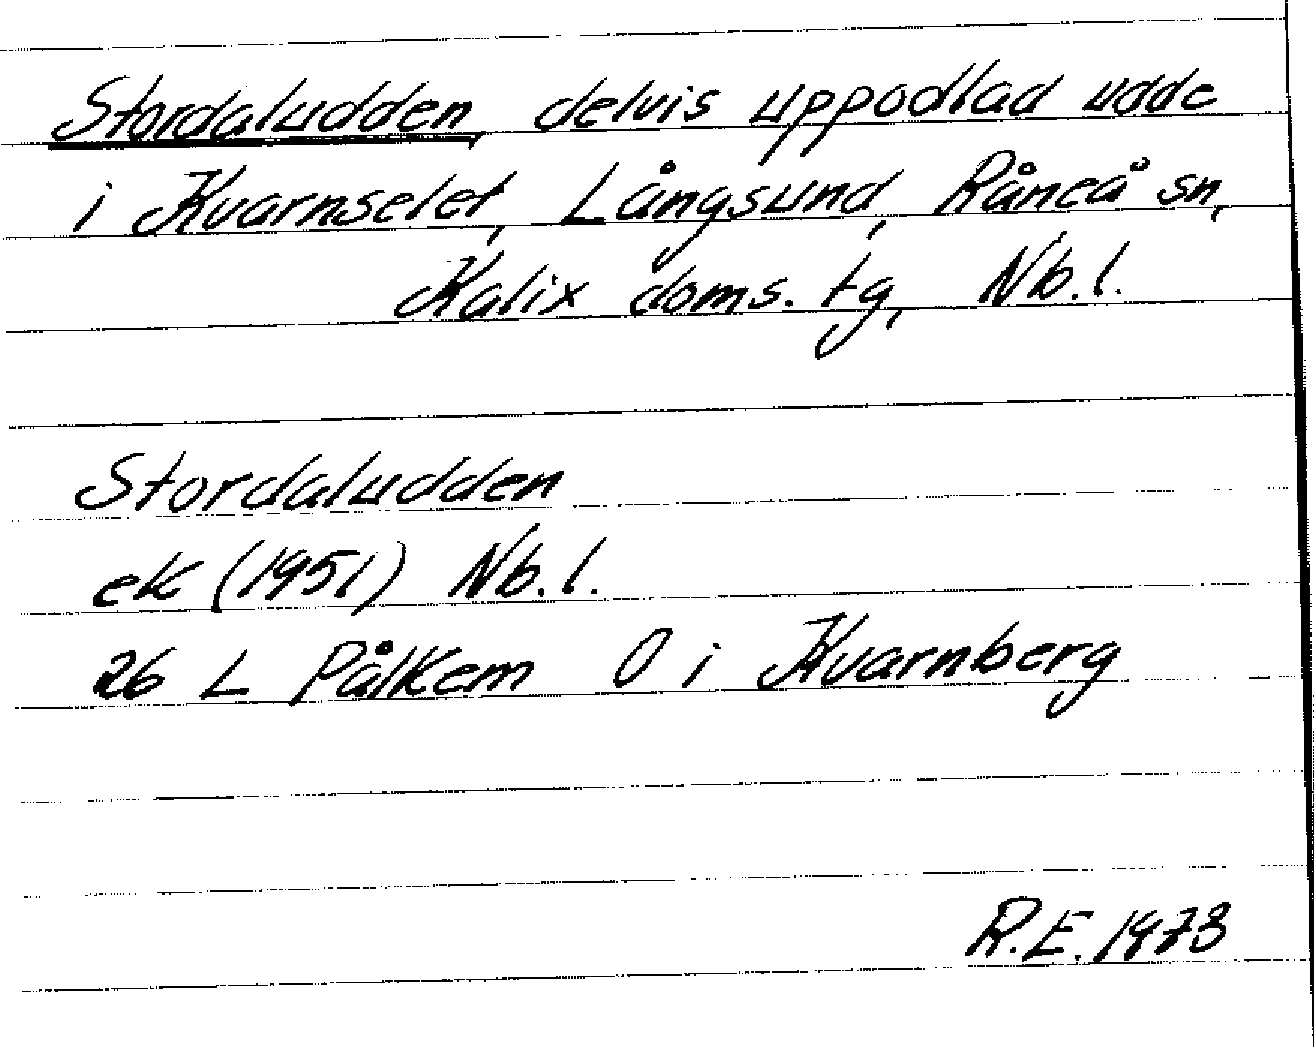 Stordaludden, delvis uppodlad udde
i Kvarnselet, Långsund, Råneå sn,
Kalix doms. tg, Nb.l.
Stordaludden
ek (1951) Nb.l.
26 L Pålkem O i Kvarnberg
R.E. 1973